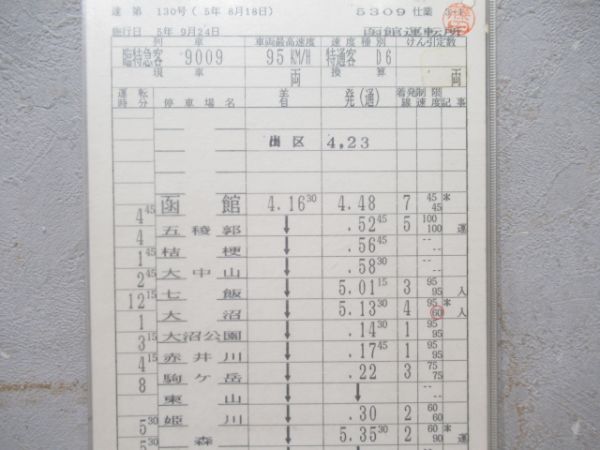 達 第 130号 ( 5年 8月18日) 5309 仕業
施行日 5年 9月24日 函館運転所
列 車 車両最高速度 速度種別 けん引定数
臨特急客 9009 95 KM/H 特通客 D6
現 車 両 換 算 両
運転時分 停車場名 着 発(通) 着発線 制限速度 記事
出区 4.23
函館 4.16 30 4.48 7 45 45 *
4 45
五稜郭 ↓ .52 45 5 100 100 運
4
桔梗 ↓ .56 45 -- --
1 45
大中山 ↓ .58 30 -- --
2 45
七飯 ↓ 5.01 15 3 95 95 入
12 15
大沼 ↓ 5.13 30 4 95 60 * 入
1
大沼公園 ↓ .14 30 1 95 95
3 15
赤井川 ↓ .17 45 1 95 95
4 15
駒ヶ岳 ↓ .22 3 75 75
8
東山 ↓ ↓ -- --
姫川 ↓ .30 2 60 60
5 30
森 ↓ 5.35 30 2 60 90 * 運
5 30